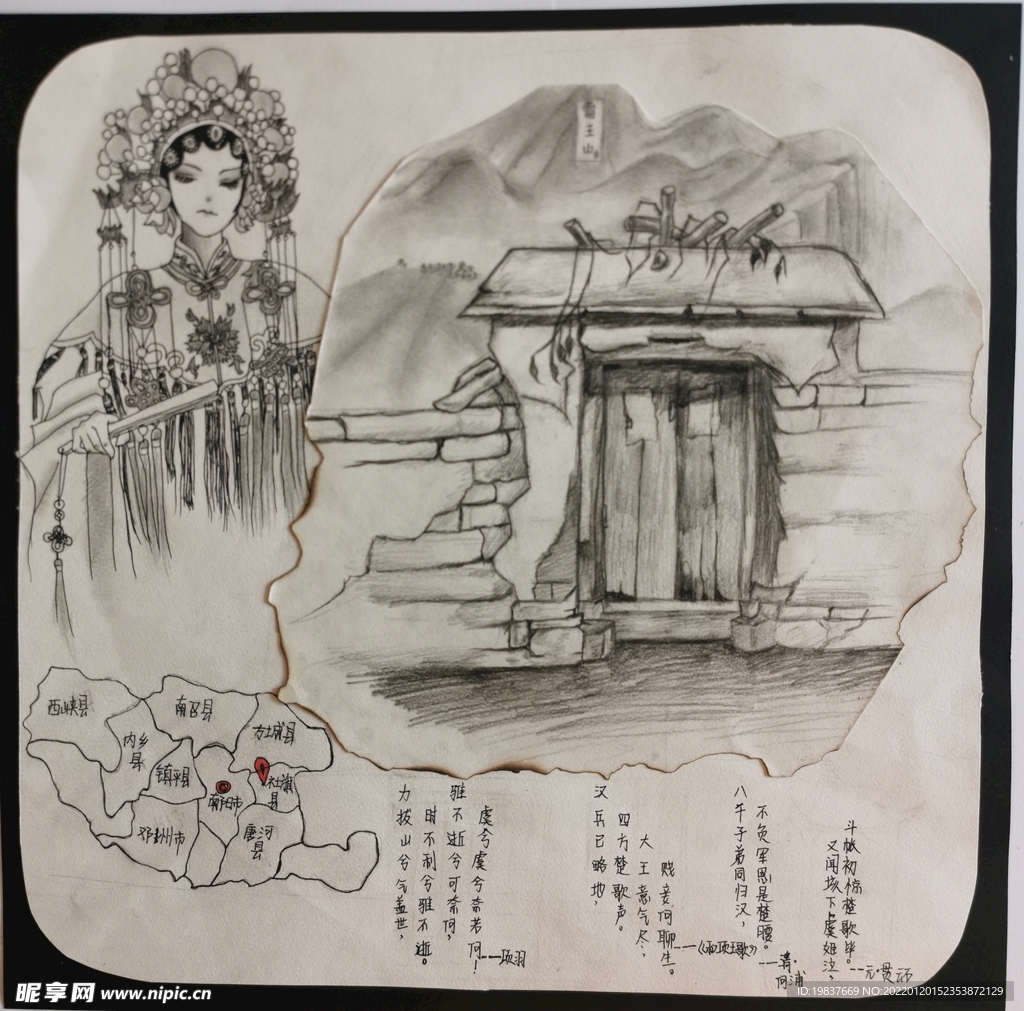 霸王山
西峡县
南召县
方城县
内乡县
镇平县
社旗县
南阳市
邓州市
唐河县
力拔山兮气盖世,
时不利兮骓不逝。
骓不逝兮可奈何,
虞兮虞兮奈若何!
——项羽
汉兵已略地,
四方楚歌声。
大王意气尽,
贱妾何聊生。
——《和项王歌》
八千子弟同归汉,
不负军恩是楚腰。
——清·何浦
又闻垓下虞姬泣,
斗帐初惊楚歌毕。
——元·贯
昵享网 www.nipic.cn
ID:19837669 NO:20220120152353872129